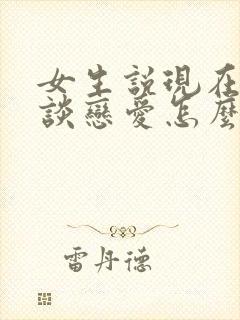 女生說現在
談戀愛怎麼
雷丹德